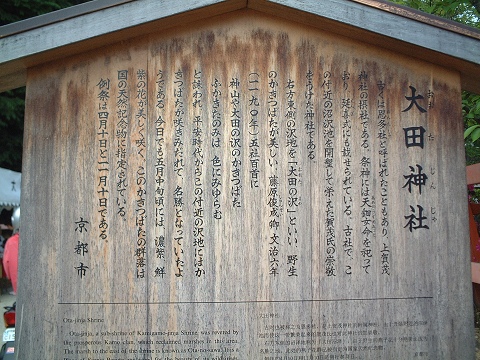 大田神社
おおたじんじゃ
古くは恩多社と呼ばれたこともあり、上賀茂
神社の摂社である。祭神には天鈿女命を祀って
おり、延喜式にも載せられている、古社で、こ
の付近の沼沢池を開墾して栄えた賀茂氏の崇敬
をうけた神社である。
右方東側の沢地を「大田の沢」といい、野生
のかきつばたが美しい。藤原俊成卿、文治六年
(一一九〇年)五社百首に
神山や大田の沢のかきつばた
ふかきたのみは 色にみゆらむ
と詠われ、平安時代からこの付近の沢地にはか
きつばたが咲きみだれて、名勝となっていたよ
うである。今日でも五月中旬頃には、濃紫、鮮
紫の花が美しく咲く。このかきつばたの群落は
国の天然記念物に指定されている。
例祭は四月十日と十一月十日である。
京都市
Ota-jinja Shrine
Ota-jinja, a sub-shrine of Kamigamo-jinja Shrine, was revered by
the prosperous Kamo clan, which reclaimed marshes in this area.
The marsh to the east of the shrine is known as Ota-no-sawa. It is a